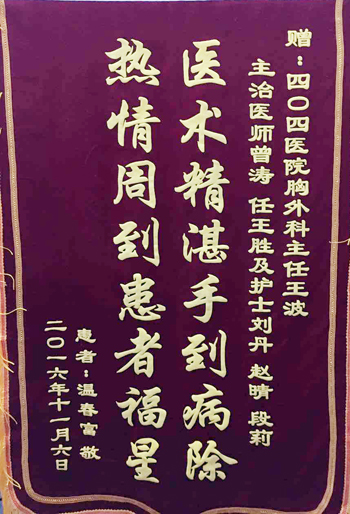 赠：四〇四医院胸外科主任王波
主治医师曾涛 任王胜及护士刘丹 赵晴 段莉
医术精湛手到病除
热情周到患者福星
患者：温春富 敬
二〇一六年十一月六日